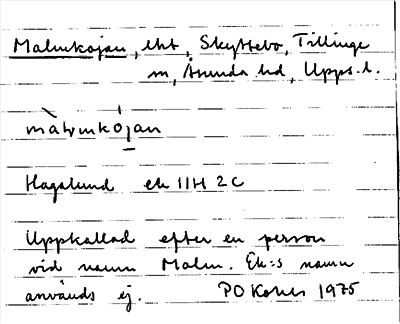 Malmkojan, lht, Skyttebo, Tillinge
sn, Åsunda hd, Upps. l.
màlmkójan
Hagalund ek 11H 2C
Uppkallad efter en person
vid namn Malm. Ek:s namn
används ej. PO 1975